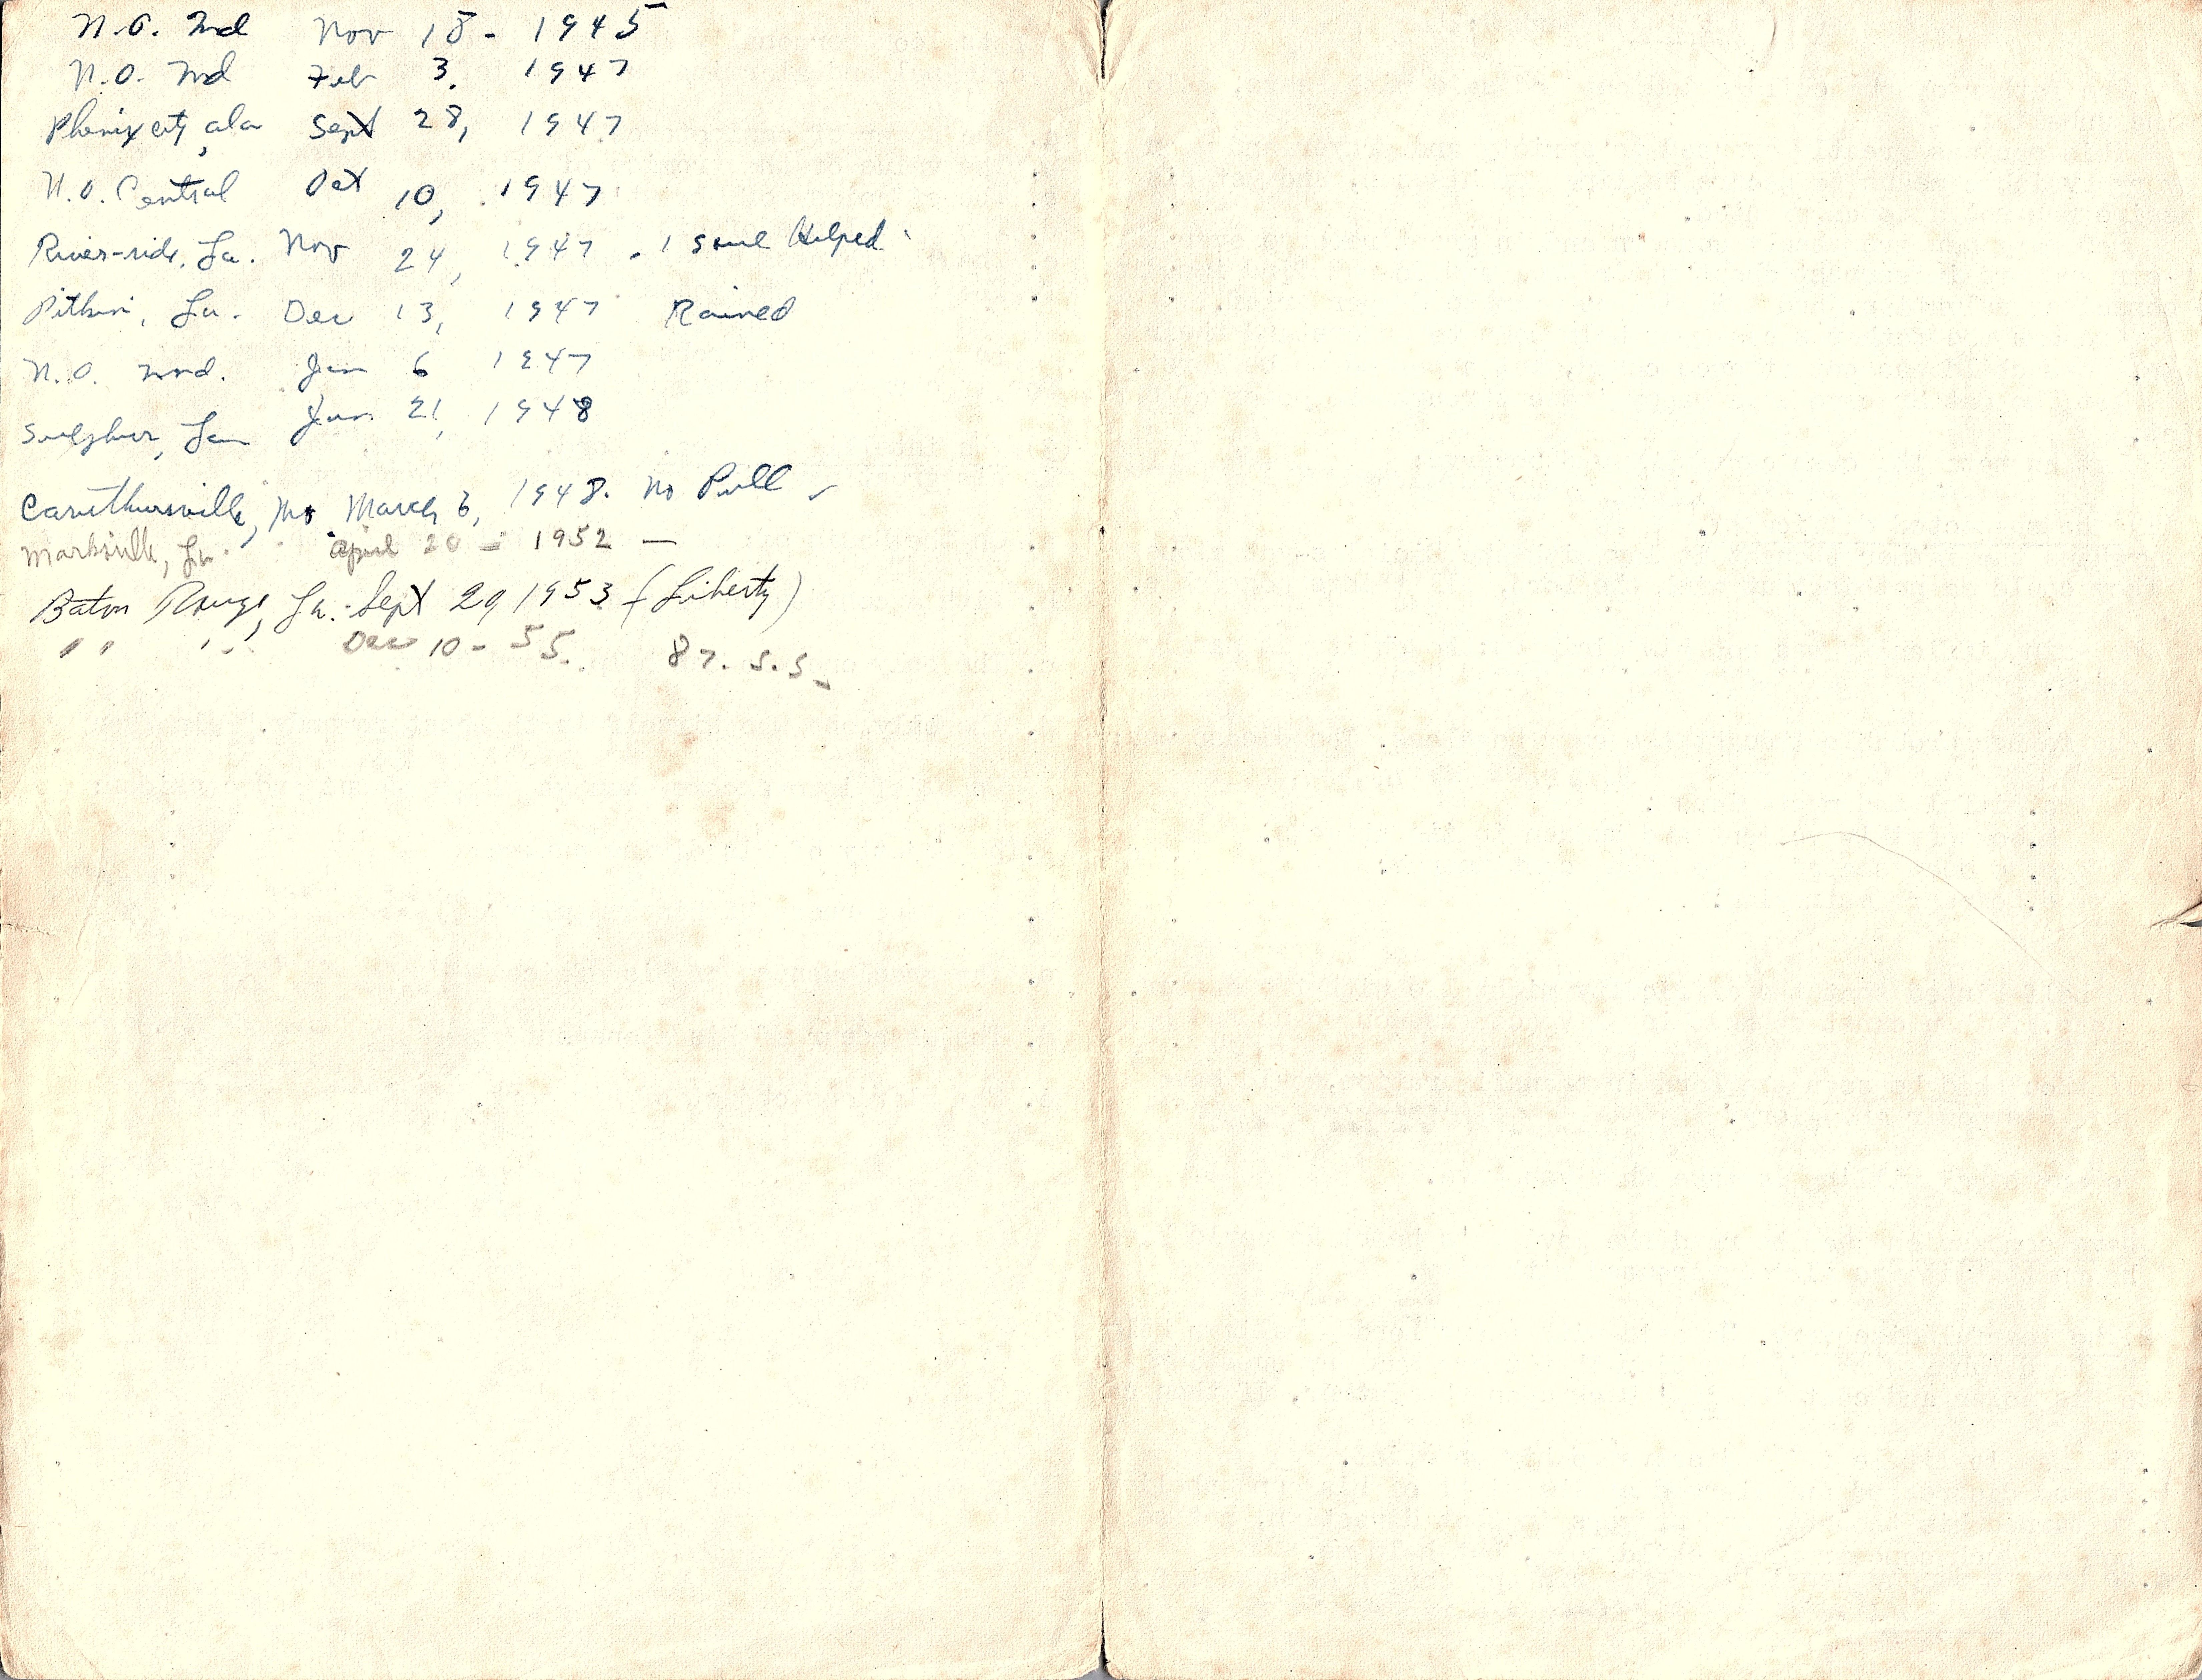 N.O. Md Nov 18 - 1945
N.O. Md Feb 3. 1947
Phenix city, ala Sept 28, 1947
N.O. Central Oct 10, 1947
River-side, La. Nov 24, 1947 . 1 soul Helped
Pitkin, La. Dec 13, 1947 Rained
N.O. Jan 6 1947
Sulphur, La Jan. 21, 1948
Caruthersville, Mo March 6, 1948. No Pull
Marksville, La. April 20 - 1952 —
Baton Rouge, La. - Sept 29 1953 (Liberty)
" " " Dec 10 - 55. 87. S.S.